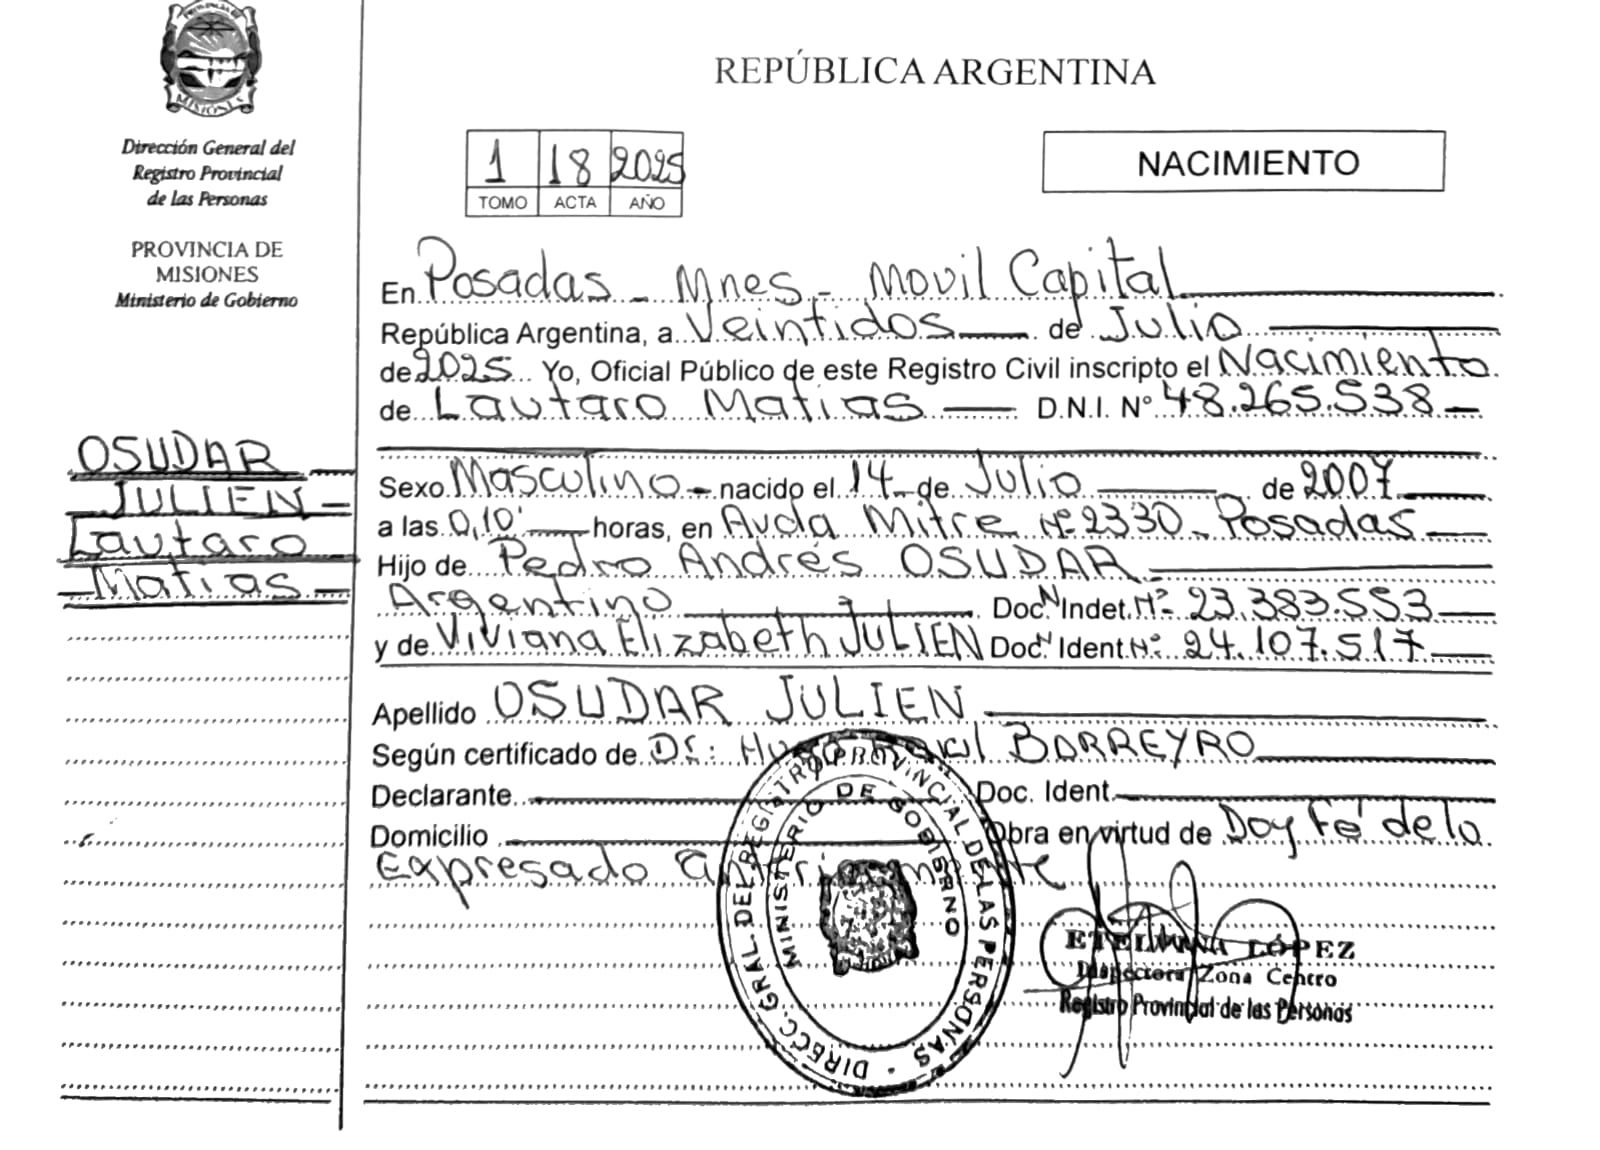 PROVINCIA DE
MISIONES
Dirección General del
Registro Provincial
de las Personas
PROVINCIA DE
MISIONES
Ministerio de Gobierno
OSUDAR
JULIEN
Lautaro
Matias
REPÚBLICA ARGENTINA
1 18 2025
TOMO ACTA AÑO
NACIMIENTO
En Posadas - Mnes - Movil Capital
República Argentina, a Veintidos de Julio
de 2025 Yo, Oficial Público de este Registro Civil inscripto el Nacimiento
de Lautaro Matias D.N.I. N° 48.265.538
Sexo Masculino - nacido el 14 de Julio de 2007
a las 0,10' horas, en Avda Mitre Nº 2330 - Posadas
Hijo de Pedro Andrés OSUDAR
Argentino Doc. N Indet. Nº 23.383.553
y de Viviana Elizabeth JULIEN Doc. N Ident. Nº 24.107.517
Apellido OSUDAR JULIEN
Según certificado de Dr: BORREYRO
Declarante Doc. Ident.
Domicilio Obra en virtud de Doy fé de lo
Expresado anteriormente
DIRECC. GRAL. DEL REGISTRO PROVINCIAL DE LAS PERSONAS
MINISTERIO DE GOBIERNO
LÓPEZ
Inspectora Zona Centro
Registro Provincial de las Personas